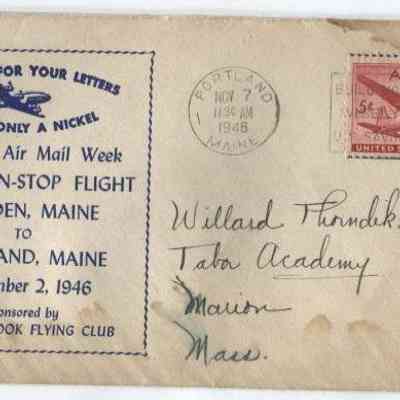 FOR YOUR LETTERS
ONLY A NICKEL
Air Mail Week
N-STOP FLIGHT
DEN, MAINE
TO
LAND, MAINE
nber 2, 1946
onsored by
OOK FLYING CLUB
PORTLAND
NOV 7
1946
MAINE
A
5¢
UNITED S
Willard Thorndik
Tabor Academy
Marion
Mass.